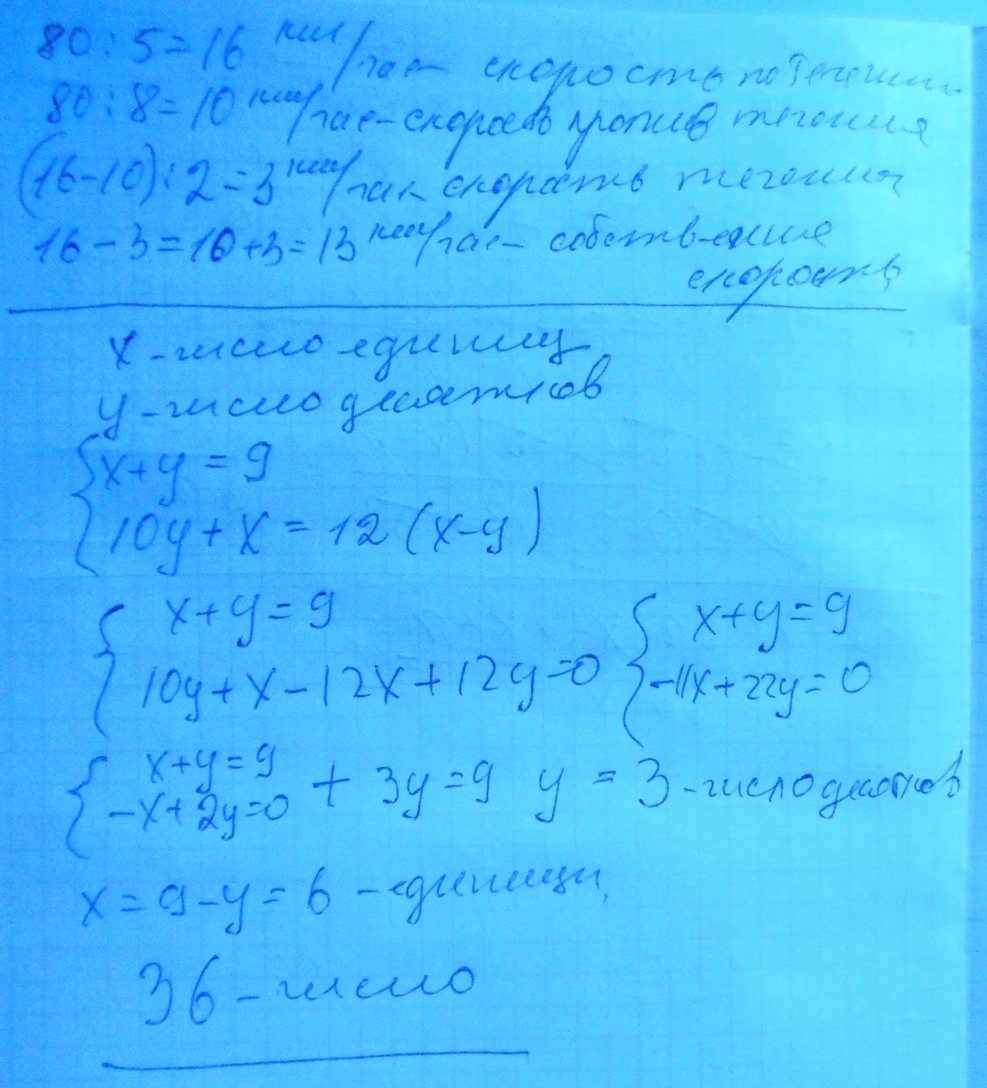 80 : 5 = 16 км/час – скорость по течению
80 : 8 = 10 км/час – скорость против течения
(16 – 10) : 2 = 3 км/час скорость течения
16 – 3 = 10 + 3 = 13 км/час –
скорость
x – число единиц
y – число десятков
{ x + y = 9
10y + x = 12 (x – y)
{ x + y = 9 { x + y = 9
10y + x – 12x + 12y = 0 –11x + 22y = 0
{ x + y = 9 + 3y = 9 y = 3 – число десятков
–x + 2y = 0
x = 9 – y = 6 – единицы
36 – число